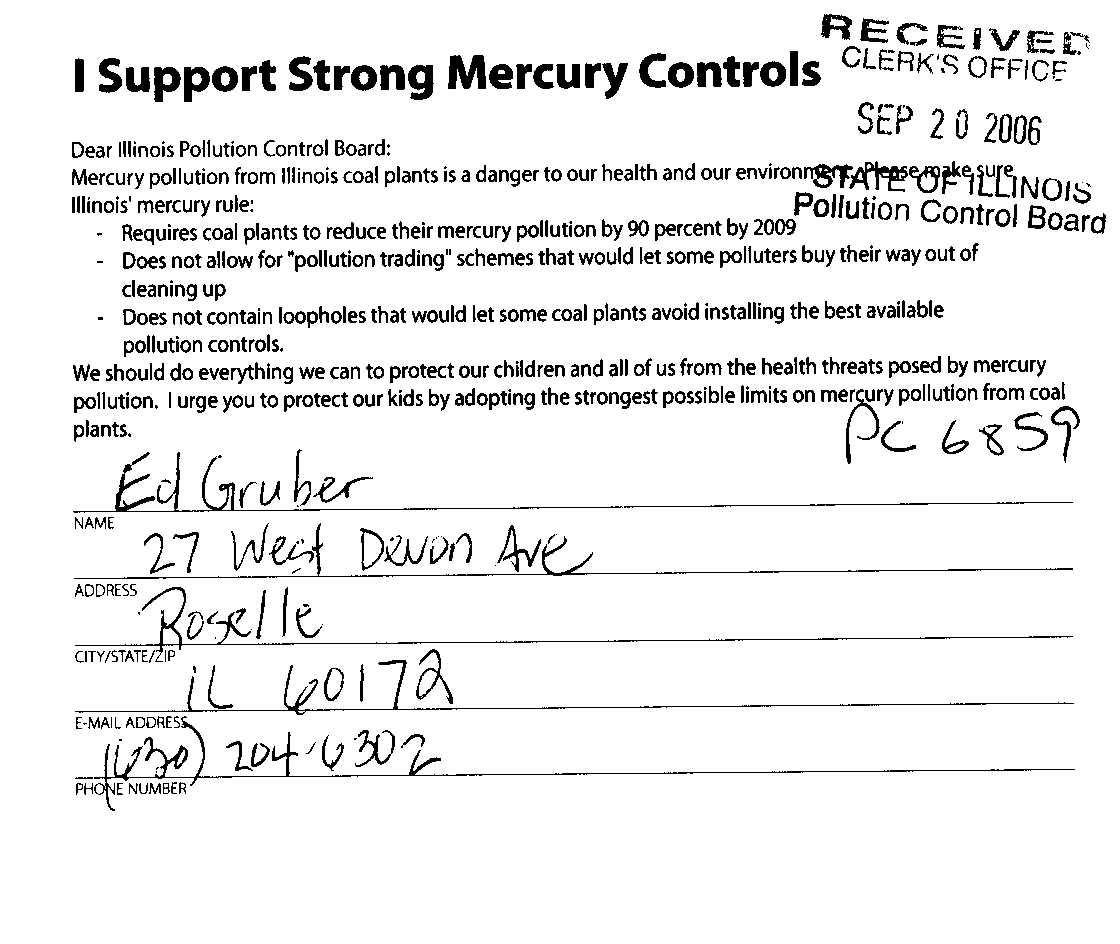 RECEIVED
CLERK'S OFFICE
I Support Strong Mercury Controls
SEP 20 2006
Dear Illinois Pollution Control Board:
Mercury pollution from Illinois coal plants is a danger to our health and our environment. Please make sure
STATE OF ILLINOIS
Illinois' mercury rule:
Pollution Control Board
- Requires coal plants to reduce their mercury pollution by 90 percent by 2009
- Does not allow for "pollution trading" schemes that would let some polluters buy their way out of
cleaning up
- Does not contain loopholes that would let some coal plants avoid installing the best available
pollution controls.
We should do everything we can to protect our children and all of us from the health threats posed by mercury
pollution. I urge you to protect our kids by adopting the strongest possible limits on mercury pollution from coal
plants.
PC 6859
Ed Gruber
NAME
27 West Devon Ave
ADDRESS
Roselle
CITY/STATE/ZIP
iL 60172
E-MAIL ADDRESS
(630) 204-6302
PHONE NUMBER